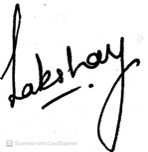 Lakshay
Scanned with CamScanner